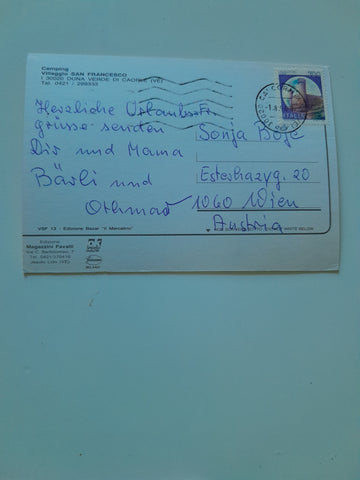 Camping
Villaggio SAN FRANCESCO
I 30020 DUNA VERDE DI CAORLE (VE)
Tel. 0421 / 299333
Herzliche Urlaubs-
grüsse senden
Dir und Mama
Bärli und
Othmar
Sonja
Esterhazyg. 20
1060 Wien
Austria
ITALIA
VSF 13 - Edizione Bazar "Il Mercatino"
WRITE BELOW
Edizione
Magazzini Pavalli
Via C. Bertolomeo, 7
Tel. 0421
Jesolo Lido (VE)